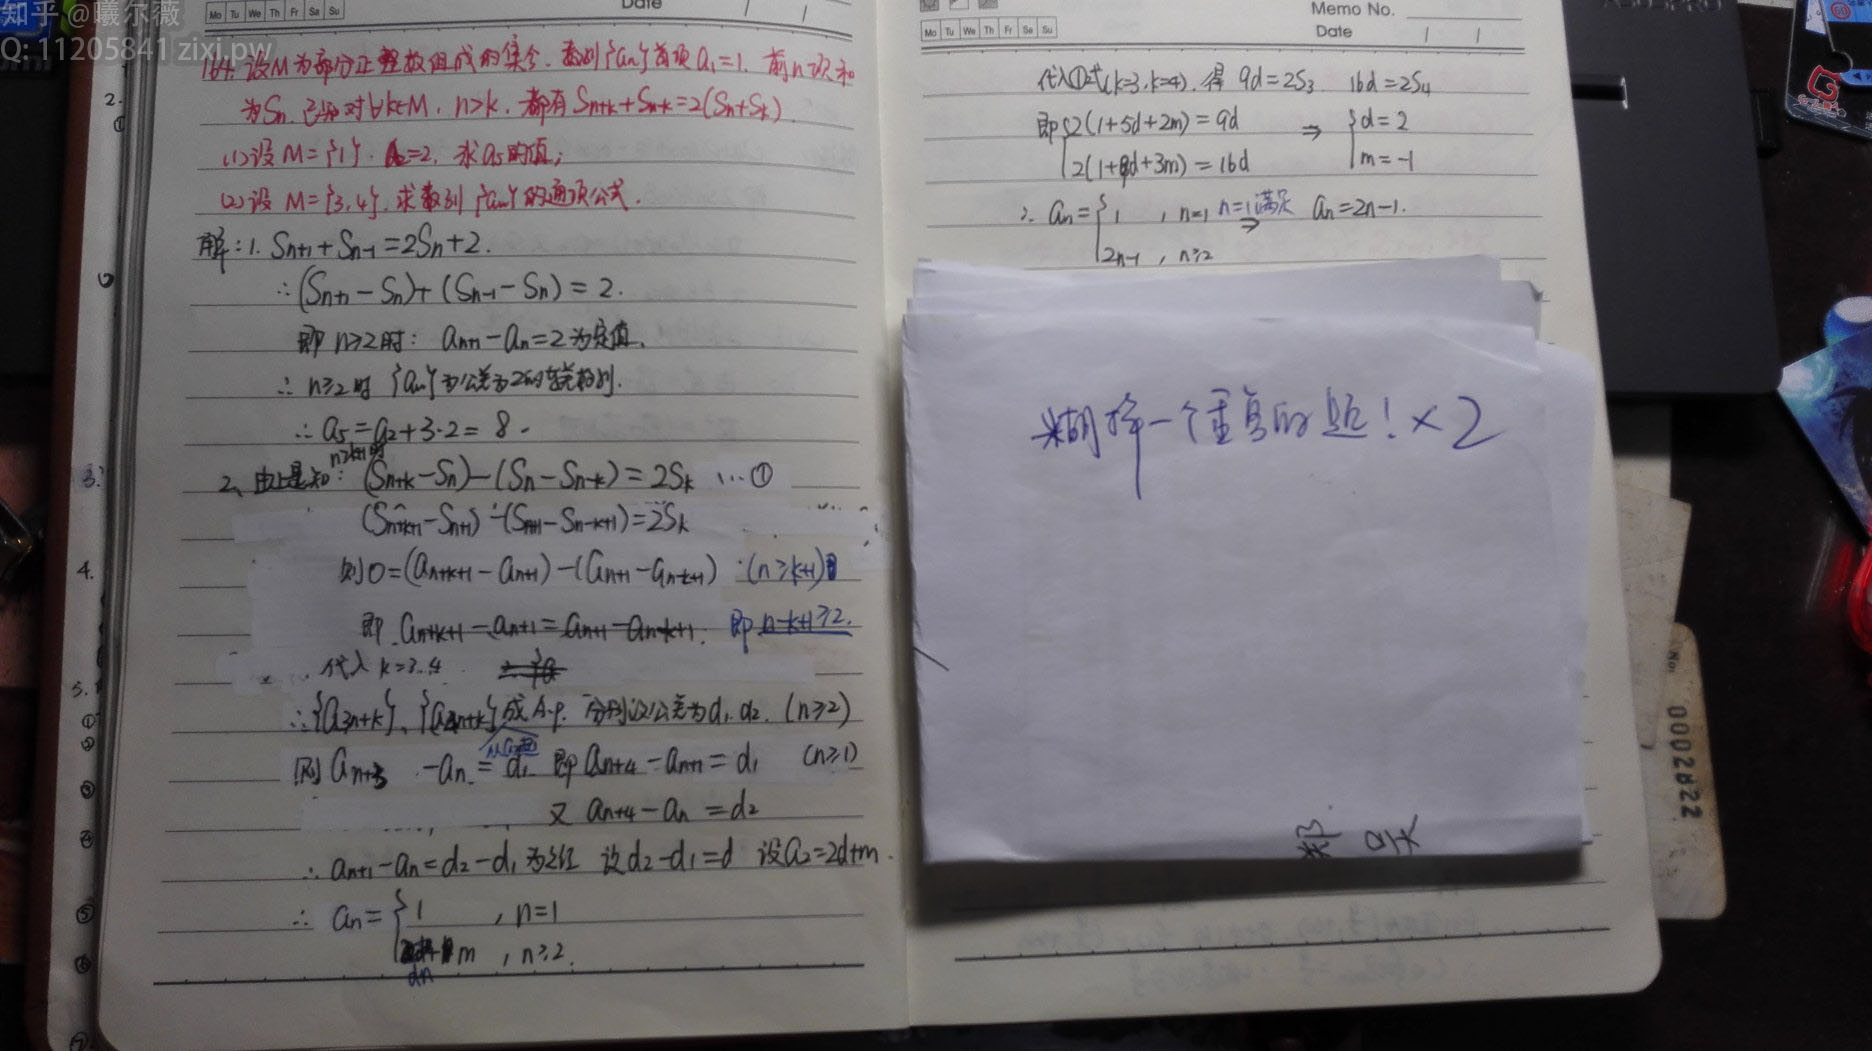 知乎 @曦尔薇
Q: 11205841 zixi.pw
Mo Tu We Th Fr Sa Su
Date
164. 设M为部分正整数组成的集合. 数列{an}首项a₁=1. 前n项和
为Sn. 已知对∀k∈M, n>k, 都有Sn+k+Sn-k=2(Sn+Sk).
(1)设M={1}. a₂=2, 求a₅的值;
(2)设M={3,4}, 求数列{an}的通项公式.
解: 1. Sn+1+Sn-1=2Sn+2.
∴(Sn+1-Sn)+(Sn-1-Sn)=2.
即n≥2时: an+1-an=2为定值.
∴n≥2时{an}为公差为2的等差数列.
∴a₅=a₂+3·2=8.
n≥k+1时
2. 由上是知: (Sn+k-Sn)-(Sn-Sn-k)=2Sk …①
(Sn+k+1-Sn+1)-(Sn+1-Sn-k+1)=2Sk
则0=(an+k+1-an+1)-(an+1-an-k+1) (n≥k+1)
即an+k+1-an+1=an+1-an-k+1. 即n-k+1≥2.
代入k=3.4
∴{a3n+k}、{a4n+k}成A.P. 分别设公差为d₁.d₂. (n≥2)
则an+3-an=d₁ 即an+4-an+1=d₁ (n≥1)
又an+4-an=d₂
∴an+1-an=d₂-d₁为定值 设d₂-d₁=d 设a₂=2d+m.
∴an={1 , n=1
dn+m , n≥2.
2.
①
3.
4.
5.
①
②
③
④
⑤
⑥
⑦
Mo Tu We Th Fr Sa Su
Memo No.
Date
代入①式(k=3,k=4). 得9d=2S₃ 16d=2S₄
即{2(1+5d+2m)=9d ⇒ {d=2
2(1+9d+3m)=16d m=-1
∴an={1 , n=1 n=1满足 ⇒ an=2n-1.
2n-1 , n≥2
糊掉一个重复的题!×2
No.
0002822